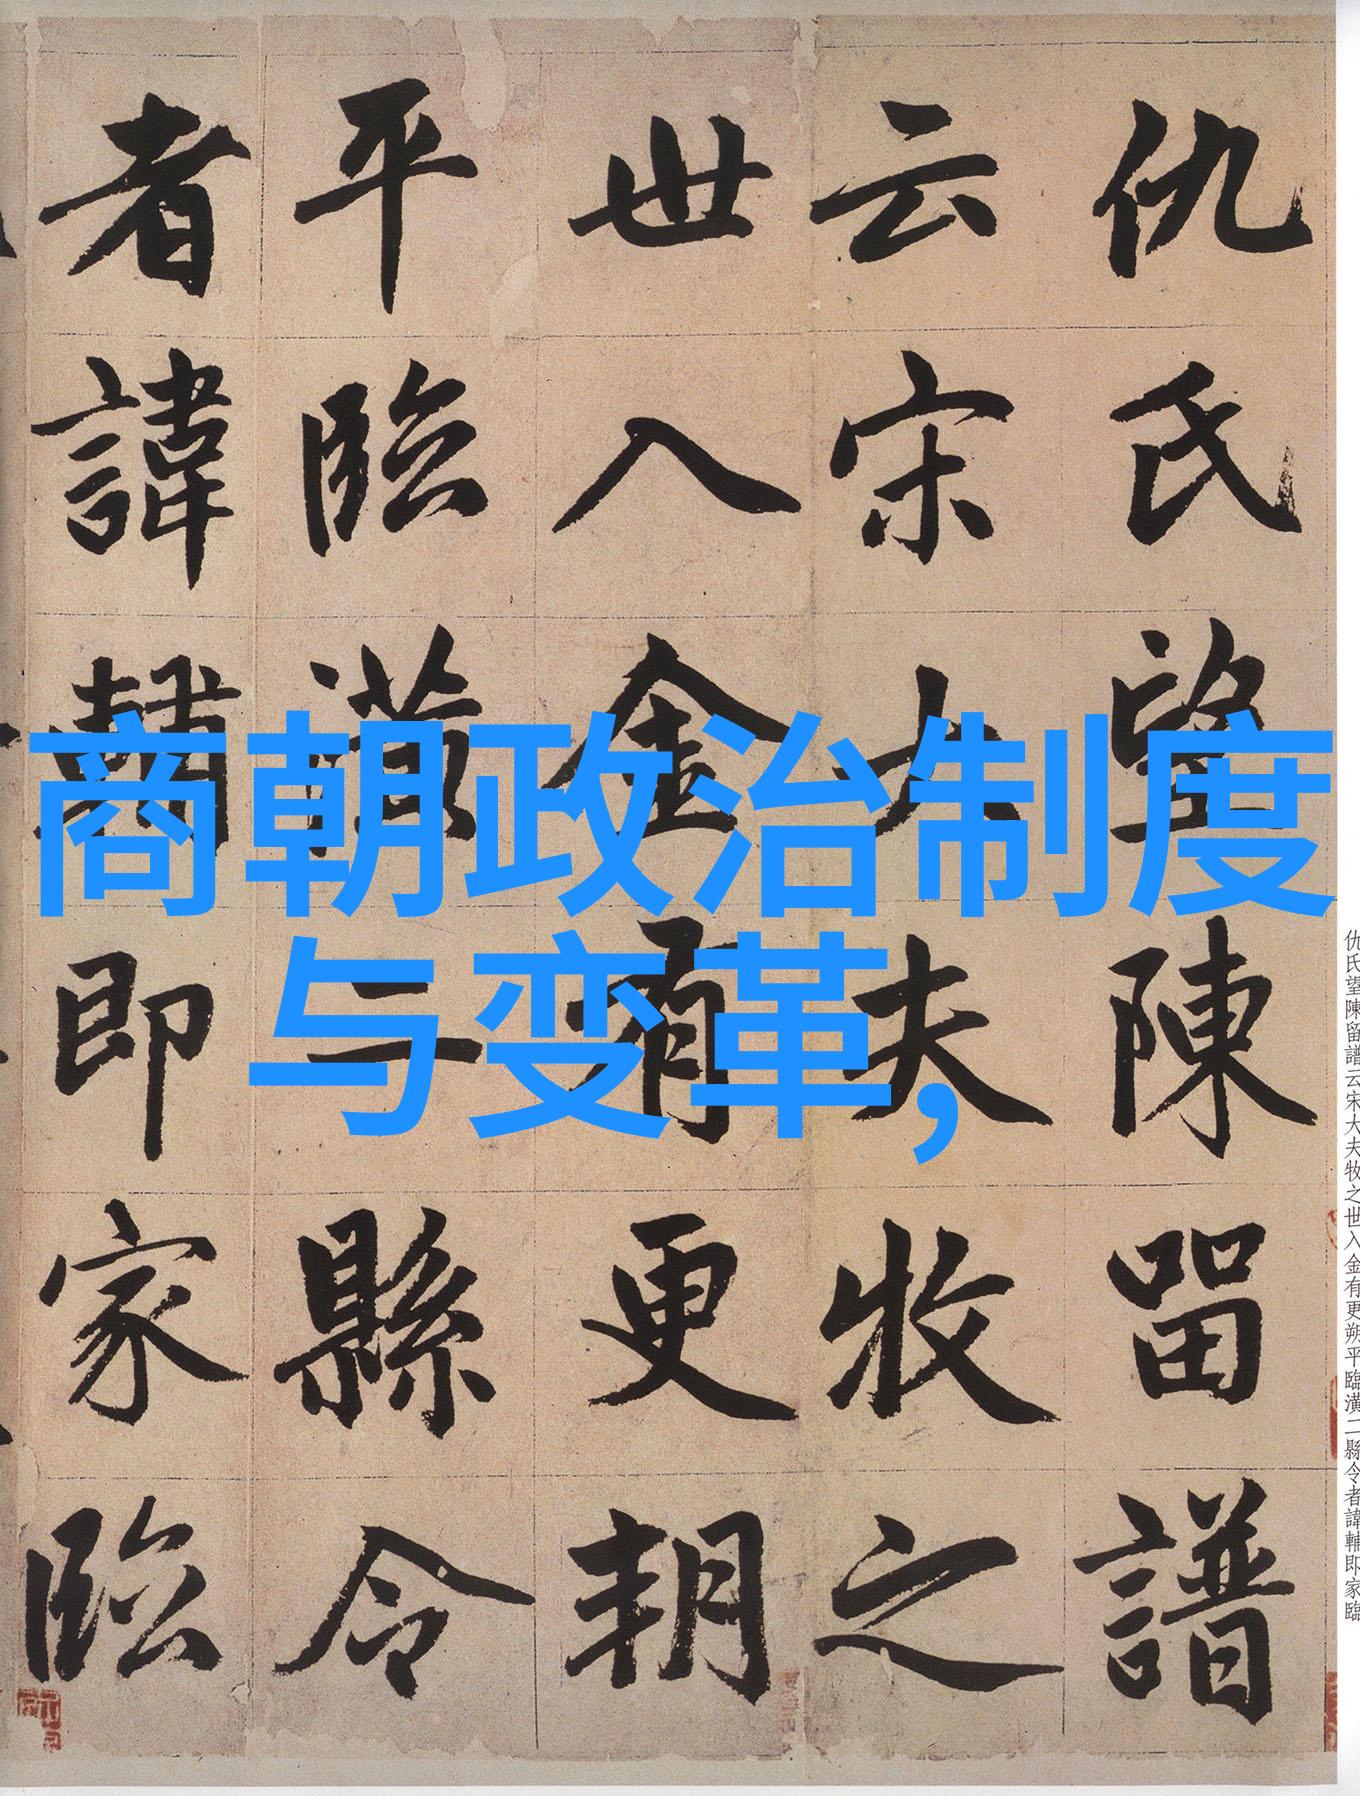 商朝政治制度
与变革,
仇氏望陳留譜
云宋大夫牧之
世入金有更朔
平臨潢二縣令
者諱輔即家臨
仇氏望陳留譜云宋大夫牧之世入金有更朔平臨潢二縣令者諱輔即家臨